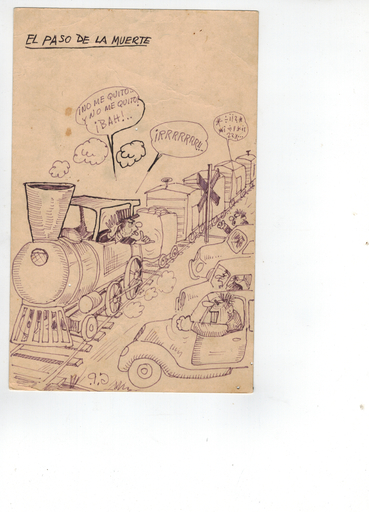 EL PASO DE LA MUERTE
¡NO ME QUITO..
Y NO ME QUITO!
¡BAH!...
¡RRRRRRRR!!..